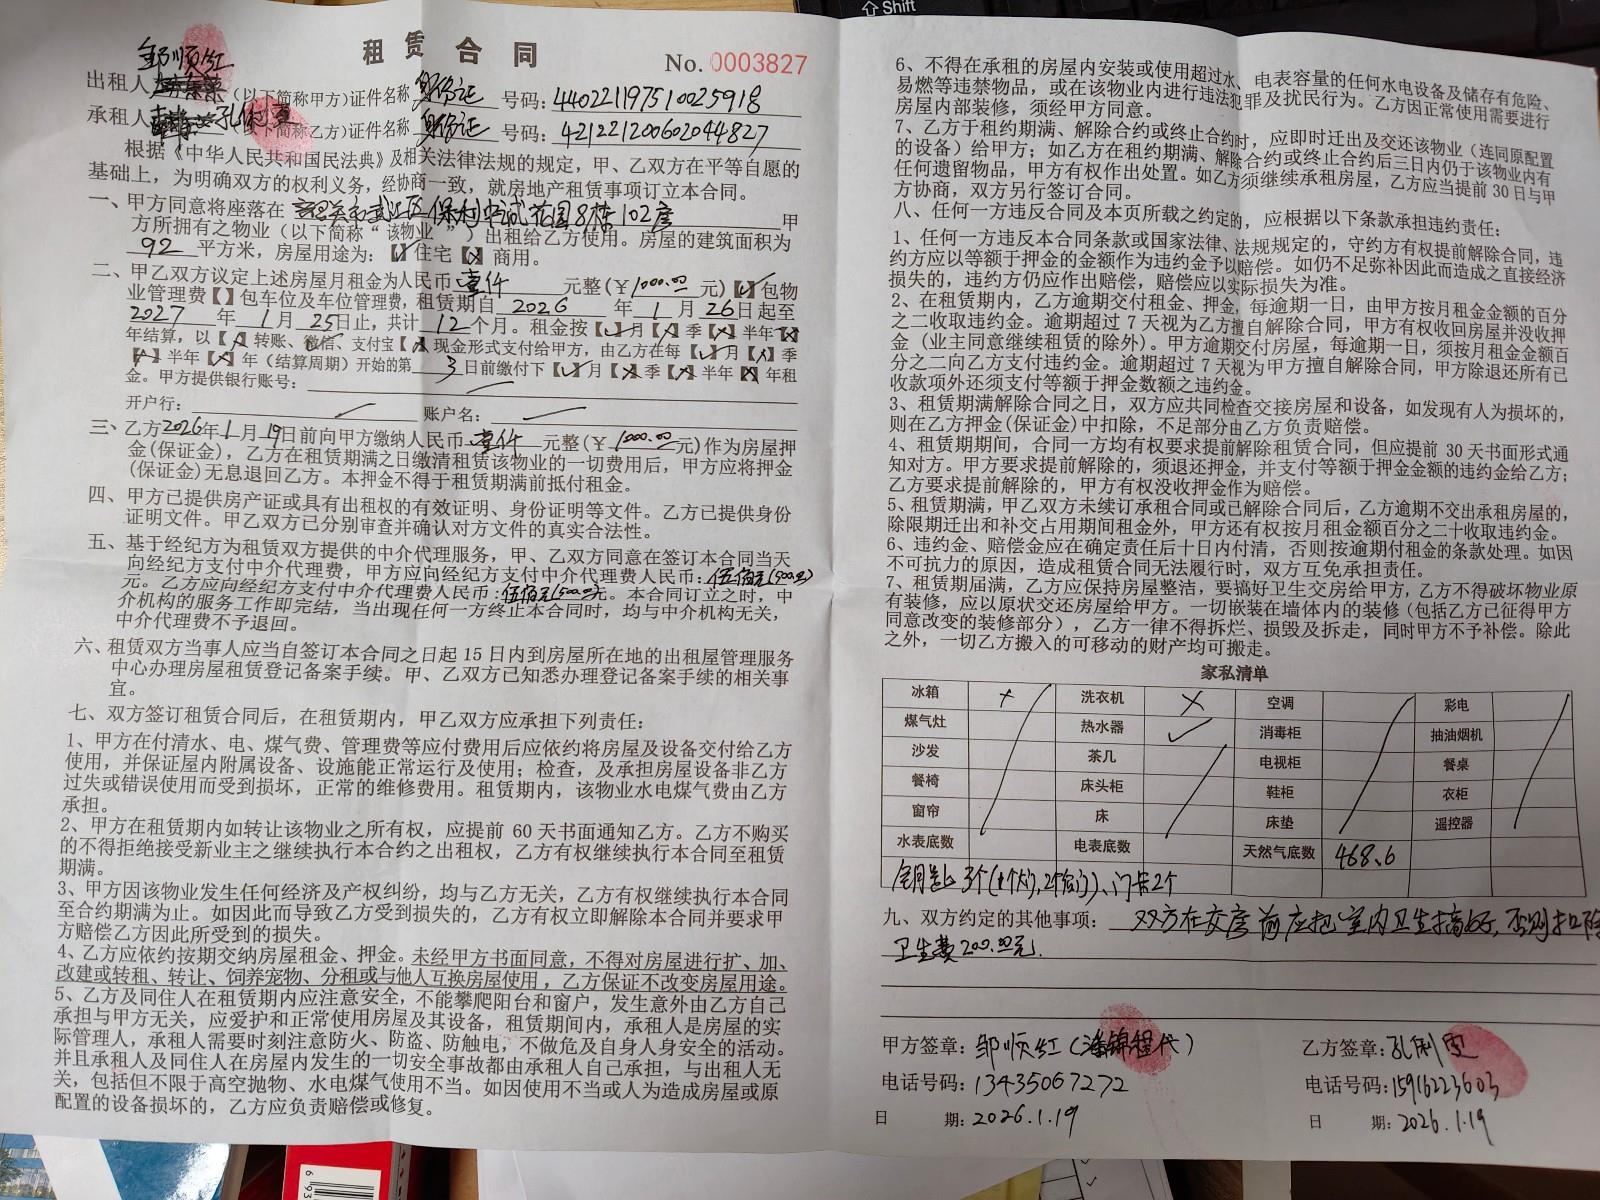 Shift
租赁合同
No. 0003827
邹顺红
出租人 （以下简称甲方）证件名称 身份证 号码：440221197510025918
承租人 孔俐 （以下简称乙方）证件名称 身份证 号码：421221200602044827
根据《中华人民共和国民法典》及相关法律法规的规定，甲、乙双方在平等自愿的
基础上，为明确双方的权利义务，经协商一致，就房地产租赁事项订立本合同。
一、甲方同意将座落在 武江区保利中诚花园8栋102房 甲
方所拥有之物业（以下简称“该物业”）出租给乙方使用。房屋的建筑面积为
92 平方米，房屋用途为：【✓】住宅【×】商用。
二、甲乙双方议定上述房屋月租金为人民币 壹仟 元整（￥1000.00元）【✓】包物
业管理费【 】包车位及车位管理费，租赁期自 2026 年 1 月 26 日起至
2027 年 1 月 25 日止，共计 12 个月。租金按【✓】月【×】季【×】半年【×】
年结算，以【✓】转账、微信、支付宝【×】现金形式支付给甲方，由乙方在每【✓】月【×】季
【×】半年【×】年（结算周期）开始的第 3 日前缴付下【✓】月【×】季【×】半年【×】年租
金。甲方提供银行账号：
开户行： 账户名：
三、乙方2026年1月19日前向甲方缴纳人民币 壹仟 元整（￥1000.00元）作为房屋押
金(保证金)，乙方在租赁期满之日缴清租赁该物业的一切费用后，甲方应将押金
(保证金)无息退回乙方。本押金不得于租赁期满前抵付租金。
四、甲方已提供房产证或具有出租权的有效证明、身份证明等文件。乙方已提供身份
证明文件。甲乙双方已分别审查并确认对方文件的真实合法性。
五、基于经纪方为租赁双方提供的中介代理服务，甲、乙双方同意在签订本合同当天
向经纪方支付中介代理费，甲方应向经纪方支付中介代理费人民币：伍佰元(500.00)
元。乙方应向经纪方支付中介代理费人民币：伍佰元(500.00)元。本合同订立之时，中
介机构的服务工作即完结，当出现任何一方终止本合同时，均与中介机构无关，
中介代理费不予退回。
六、租赁双方当事人应当自签订本合同之日起 15 日内到房屋所在地的出租屋管理服务
中心办理房屋租赁登记备案手续。甲、乙双方已知悉办理登记备案手续的相关事
宜。
七、双方签订租赁合同后，在租赁期内，甲乙双方应承担下列责任：
1、甲方在付清水、电、煤气费、管理费等应付费用后应依约将房屋及设备交付给乙方
使用，并保证屋内附属设备、设施能正常运行及使用；检查，及承担房屋设备非乙方
过失或错误使用而受到损坏，正常的维修费用。租赁期内，该物业水电煤气费由乙方
承担。
2、甲方在租赁期内如转让该物业之所有权，应提前 60 天书面通知乙方。乙方不购买
的不得拒绝接受新业主之继续执行本合约之出租权，乙方有权继续执行本合同至租赁
期满。
3、甲方因该物业发生任何经济及产权纠纷，均与乙方无关，乙方有权继续执行本合同
至合约期满为止。如因此而导致乙方受到损失的，乙方有权立即解除本合同并要求甲
方赔偿乙方因此所受到的损失。
4、乙方应依约按期交纳房屋租金、押金。未经甲方书面同意，不得对房屋进行扩、加、
改建或转租、转让、饲养宠物、分租或与他人互换房屋使用，乙方保证不改变房屋用途。
5、乙方及同住人在租赁期内应注意安全，不能攀爬阳台和窗户，发生意外由乙方自己
承担与甲方无关，应爱护和正常使用房屋及其设备，租赁期间内，承租人是房屋的实
际管理人，承租人需要时刻注意防火、防盗、防触电，不做危及自身人身安全的活动。
并且承租人及同住人在房屋内发生的一切安全事故都由承租人自己承担，与出租人无
关，包括但不限于高空抛物、水电煤气使用不当。如因使用不当或人为造成房屋或原
配置的设备损坏的，乙方应负责赔偿或修复。
6、不得在承租的房屋内安装或使用超过水、电表容量的任何水电设备及储存有危险、
易燃等违禁物品，或在该物业内进行违法犯罪及扰民行为。乙方因正常使用需要进行
房屋内部装修，须经甲方同意。
7、乙方于租约期满、解除合约或终止合约时，应即时迁出及交还该物业（连同原配置
的设备）给甲方；如乙方在租约期满、解除合约或终止合约后三日内仍于该物业内有
任何遗留物品，甲方有权作出处置。如乙方须继续承租房屋，乙方应当提前 30 日与甲
方协商，双方另行签订合同。
八、任何一方违反合同及本页所载之约定的，应根据以下条款承担违约责任：
1、任何一方违反本合同条款或国家法律、法规规定的，守约方有权提前解除合同，违
约方应以等额于押金的金额作为违约金予以赔偿。如仍不足弥补因此而造成之直接经济
损失的，违约方仍应作出赔偿，赔偿应以实际损失为准。
2、在租赁期内，乙方逾期交付租金、押金，每逾期一日，由甲方按月租金金额的百分
之二收取违约金。逾期超过 7 天视为乙方擅自解除合同，甲方有权收回房屋并没收押
金（业主同意继续租赁的除外）。甲方逾期交付房屋，每逾期一日，须按月租金金额百
分之二向乙方支付违约金。逾期超过 7 天视为甲方擅自解除合同，甲方除退还所有已
收款项外还须支付等额于押金数额之违约金。
3、租赁期满解除合同之日，双方应共同检查交接房屋和设备，如发现有人为损坏的，
则在乙方押金(保证金)中扣除，不足部分由乙方负责赔偿。
4、租赁期期间，合同一方均有权要求提前解除租赁合同，但应提前 30 天书面形式通
知对方。甲方要求提前解除的，须退还押金，并支付等额于押金金额的违约金给乙方；
乙方要求提前解除的，甲方有权没收押金作为赔偿。
5、租赁期满，甲乙双方未续订承租合同或已解除合同后，乙方逾期不交出承租房屋的，
除限期迁出和补交占用期间租金外，甲方还有权按月租金额百分之二十收取违约金。
6、违约金、赔偿金应在确定责任后十日内付清，否则按逾期付租金的条款处理。如因
不可抗力的原因，造成租赁合同无法履行时，双方互免承担责任。
7、租赁期届满，乙方应保持房屋整洁，要搞好卫生交房给甲方，乙方不得破坏物业原
有装修，应以原状交还房屋给甲方。一切嵌装在墙体内的装修（包括乙方已征得甲方
同意改变的装修部分），乙方一律不得拆烂、损毁及拆走，同时甲方不予补偿。除此
之外，一切乙方搬入的可移动的财产均可搬走。
家私清单
冰箱 × 洗衣机 × 空调 彩电
煤气灶 热水器 ✓ 消毒柜 抽油烟机
沙发 茶几 电视柜 餐桌
餐椅 床头柜 鞋柜 衣柜
窗帘 床 床垫 遥控器
水表底数 电表底数 天然气底数 468.6
钥匙3个(1个大门,2个房门)、门卡2个
九、双方约定的其他事项：双方在交房前应把室内卫生搞好,否则扣除
卫生费200.00元.
甲方签章：邹顺红（潘锦程代）
电话号码：13435067272
日 期：2026.1.19
乙方签章：孔俐
电话号码：15916223603
日 期：2026.1.19